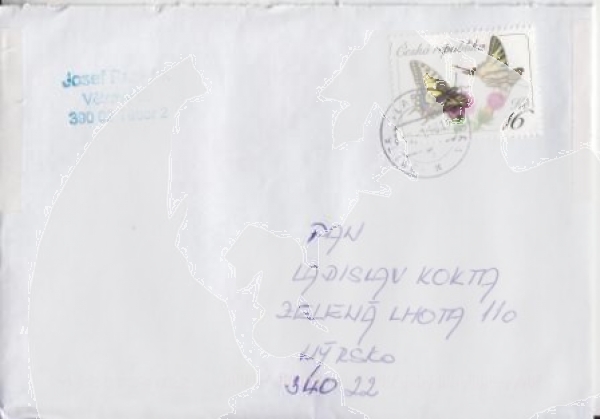 Josef
Česká republika
16 Kč
PAN
LADISLAV KOKTA
ZELENÁ LHOTA 110
NÝRSKO
340 22